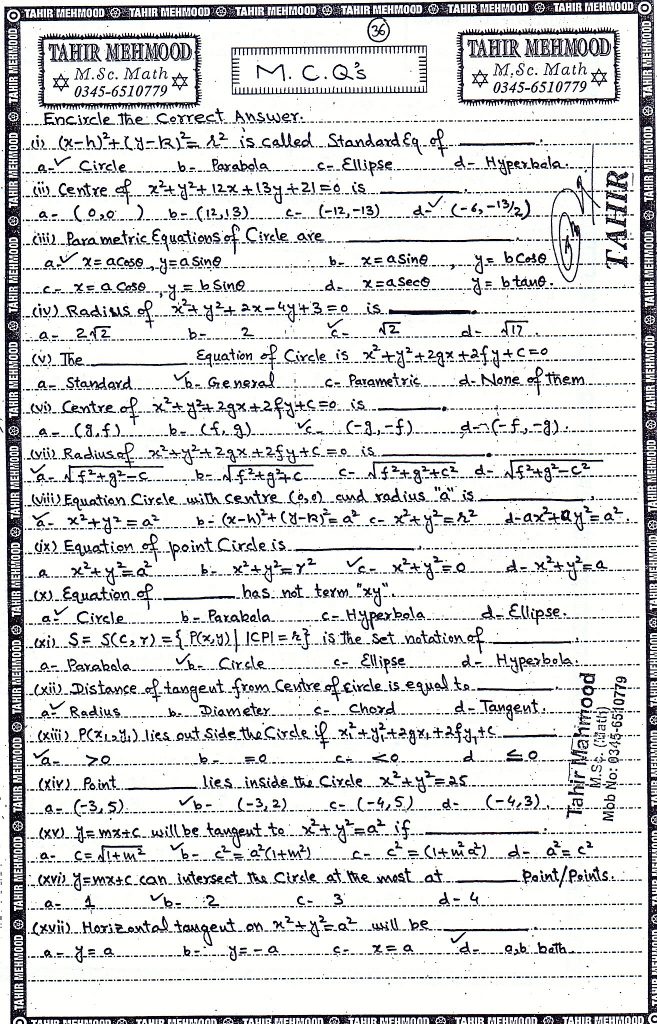 36
TAHIR MEHMOOD
M.Sc. Math
0345-6510779
M.C.Q's
TAHIR MEHMOOD
M.Sc. Math
0345-6510779
Encircle the Correct Answer.
(i) (x-h)²+(y-k)²= r² is called Standard Eq of ______.
a-✓ Circle b- Parabola c- Ellipse d- Hyperbola.
(ii) Centre of x²+y²+12x+13y+21=0 is ______.
a- (0,0) b- (12,13) c- (-12,-13) d-✓ (-6,-13/2)
(iii) Parametric Equations of Circle are ______.
a-✓ x=acosθ, y=asinθ b- x=aSinθ, y=bCosθ
c- x=aCosθ, y=bSinθ d- x=asecθ y=btanθ.
TAHIR
(iv) Radius of x²+y²+2x-4y+3=0 is ______.
a- 2√2 b- 2 ✓c- √2 d- √17.
(v) The ______ Equation of Circle is x²+y²+2gx+2fy+c=0
a- Standard ✓b- General c- Parametric d- None of them
(vi) Centre of x²+y²+2gx+2fy+c=0 is ______.
a- (g,f) b- (f,g) ✓c- (-g,-f) d- (-f,-g).
(vii) Radius of x²+y²+2gx+2fy+c=0 is ______.
✓a- √f²+g²-c b- √f²+g²+c c- √f²+g²+c² d- √f²+g²-c²
(viii) Equation Circle with centre (0,0) and radius "a" is ______.
✓a- x²+y²=a² b- (x-h)²+(y-k)²=a² c- x²+y²=r² d- ax²+ay²=a².
(ix) Equation of point Circle is ______.
a x²+y²=a² b- x²+y²=r² ✓c- x²+y²=0 d- x²+y²=a
(x) Equation of ______ has not term "xy".
a-✓ Circle b- Parabola c- Hyperbola d- Ellipse.
(xi) S= S(c,r)={P(x,y)| |CP|=r} is the set notation of ______.
a- Parabola ✓b- Circle c- Ellipse d- Hyperbola.
(xii) Distance of tangent from Centre of circle is equal to ______.
a-✓ Radius b- Diameter c- Chord d- Tangent.
(xiii) P(x₁,y₁) lies out Side the Circle if x₁²+y₁²+2gx₁+2fy₁+c ______
✓a- >0 b- =0 c- <0 d ≤0
(xiv) Point ______ lies inside the Circle x²+y²=25
a- (-3,5) ✓b- (-3,2) c- (-4,5) d- (-4,3).
Tahir Mahmood
M.Sc. (Math)
Mob No: 0345-6510779
(xv) y=mx+c will be tangent to x²+y²=a² if ______.
a- c=√1+m² ✓b- c²=a²(1+m²) c- c²=(1+m²a²) d- a²=c²
(xvi) y=mx+c can intersect the Circle at the most at ______ Point/Points.
a- 1 ✓b- 2 c- 3 d- 4
(xvii) Horizontal tangent on x²+y²=a² will be ______.
a- y=a b- y=-a c- x=a ✓d- a,b both